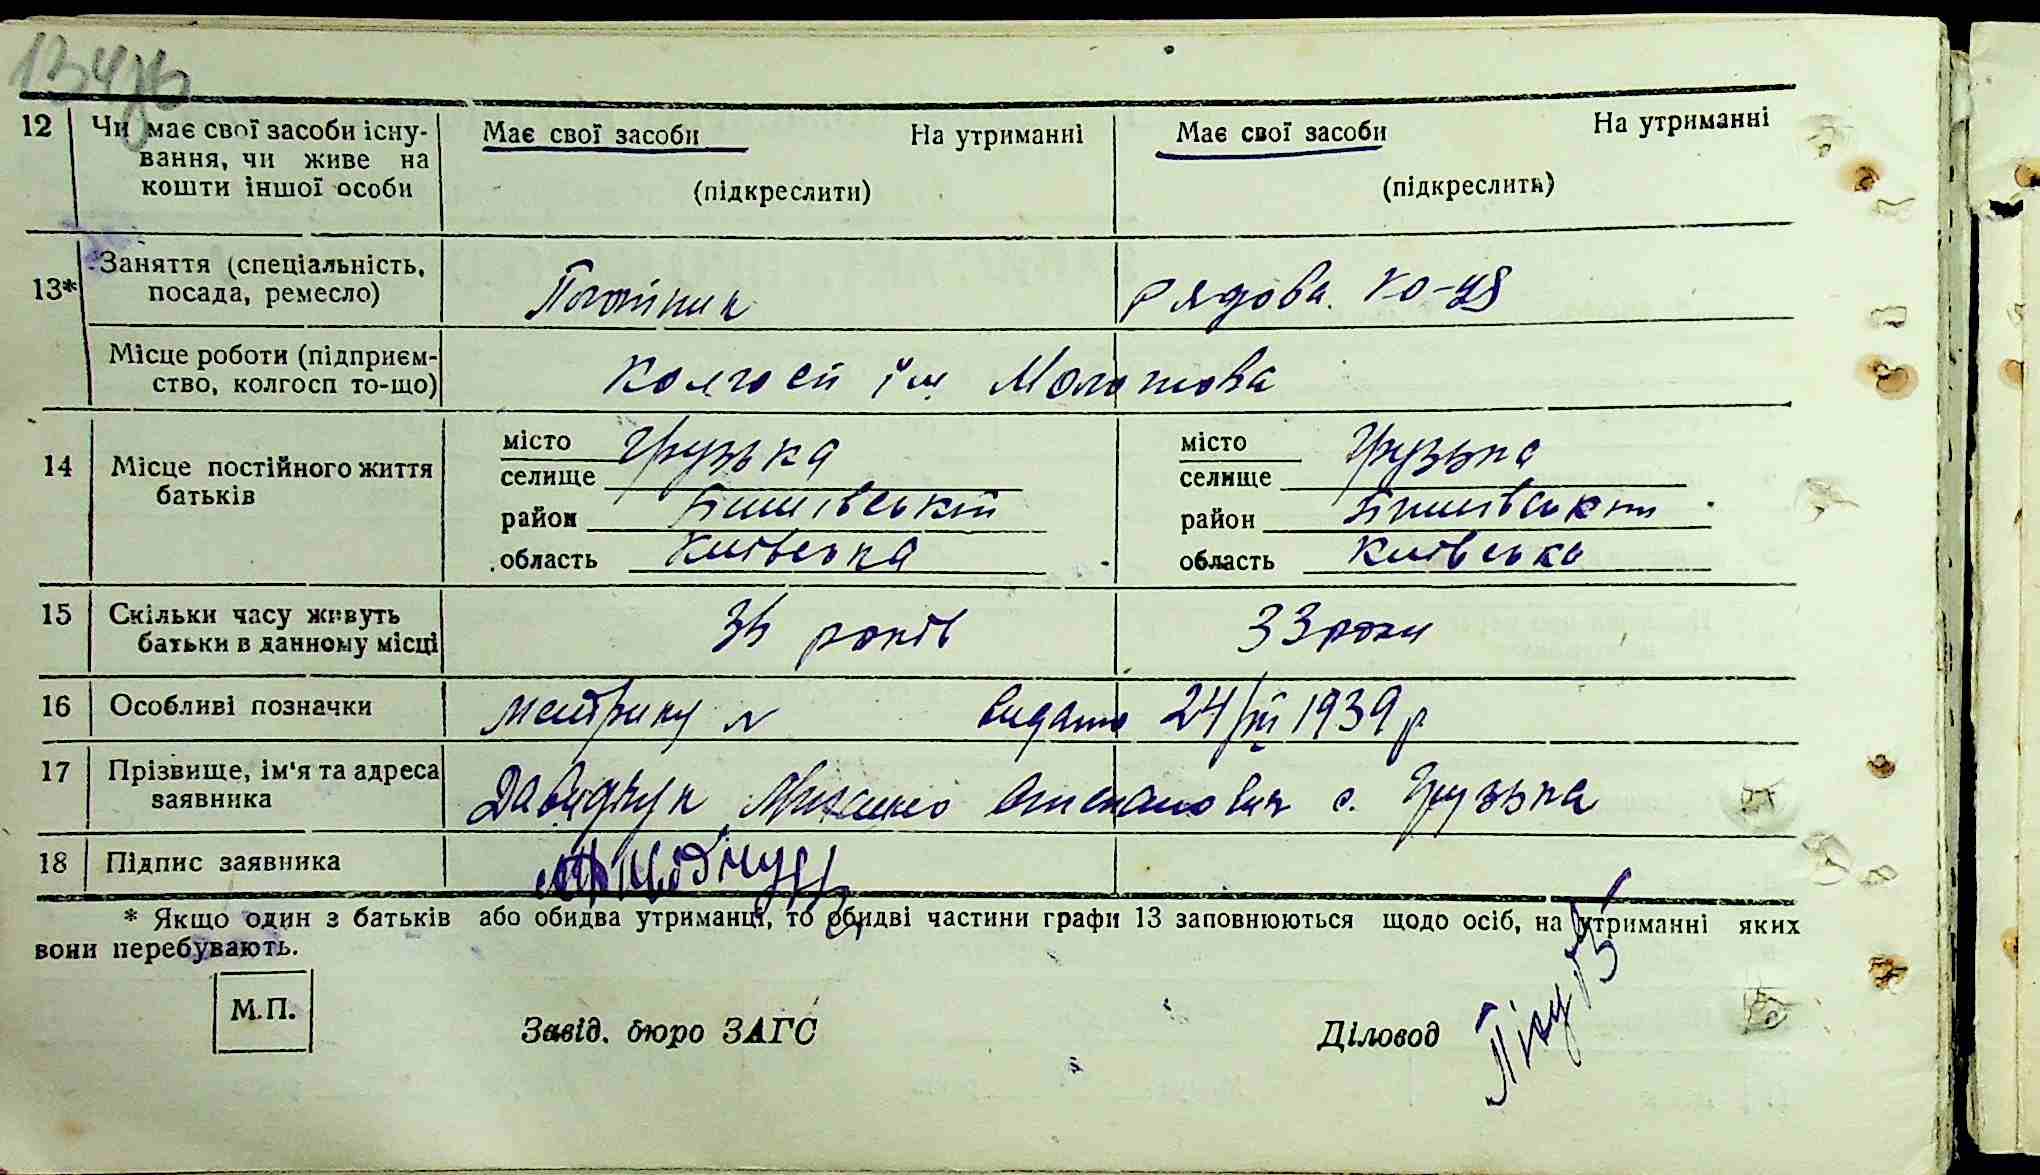 134зв
12 Чи має свої засоби існу- Має свої засоби На утриманні Має свої засоби На утриманні
вання, чи живе на
кошти іншої особи (підкреслити) (підкреслити)
Заняття (спеціальність,
13* посада, ремесло) рядова. ко-ця
Місце роботи (підприєм- Колгосп ім Молотова
ство, колгосп то-що)
місто Грузька місто Грузька
14 Місце постійного життя селище селище
батьків район Бишівський район Бишівський
область Київська область Київська
15 Скільки часу живуть 36 років 33 роки
батьки в данному місці
16 Особливі позначки метрику № видано 24/III 1939 р
17 Прізвище, ім'я та адреса Давидчук Михайло Степанович с. Грузька
заявника
18 Підпис заявника
* Якщо один з батьків або обидва утриманці, то обидві частини графи 13 заповнюються щодо осіб, на утриманні яких
вони перебувають.
М.П.
Завід. бюро ЗАГС Діловод